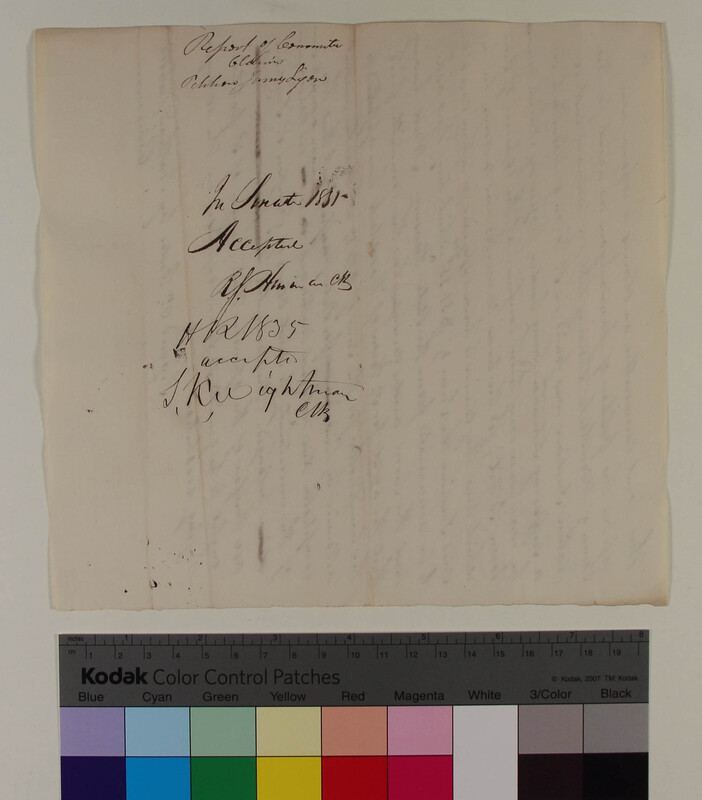 Report of Committee
Petition James Lyon
In Senate 1835
Accepted
R. Hinman Clk
HR 1835
accepted
S, K, Wightman
Clk
inches
1 2 3 4 5 6 7 8
cm
1 2 3 4 5 6 7 8 9 10 11 12 13 14 15 16 17 18 19
Kodak Color Control Patches
© Kodak, 2007 TM: Kodak
Blue Cyan Green Yellow Red Magenta White 3/Color Black